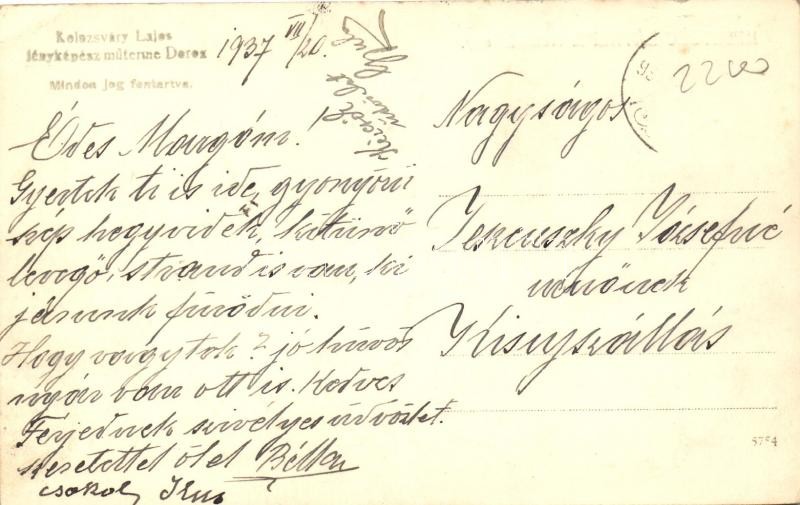 Kolozsváry Lajos
fényképész műterme Dorog
Minden jog fentartva.
1937 VII/20.
Édes Margóm!
Gyertek ti is ide, gyönyörü
szép hegyvidék, kitünő
levegő, strand is van, ki
járunk fürödni.
Hogy vagytok? jó hüvös
nyár van ott is. Kedves
Férjednek szivélyes üdvözlet.
szeretettel ölel Bélla
csokol
Nagyságos
Józsefné
urnőnek
Kisujszállás
5754